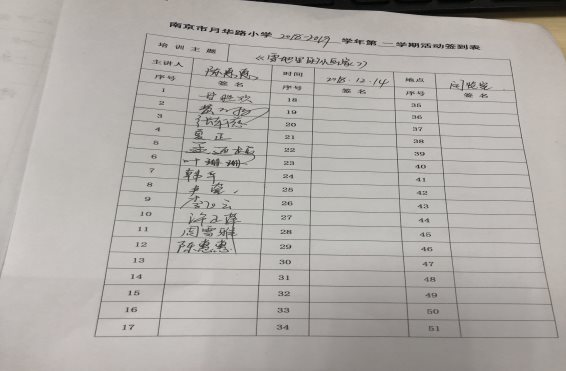 南京市月华路小学 2018-2019 学年第二学期活动签到表
培训主题
主讲人 陈惠惠 时间 2018.12.14 地点
序号 签名 序号 签名 序号 签名
1 18 35
2 19 36
3 20 37
4 夏正 21 38
5 22 39
6 叶珊珊 23 40
7 韩卉 24 41
8 25 42
9 26 43
10 27 44
11 周雪雅 28 45
12 陈惠惠 29 46
13 30 47
14 31 48
15 32 49
16 33 50
17 34 51